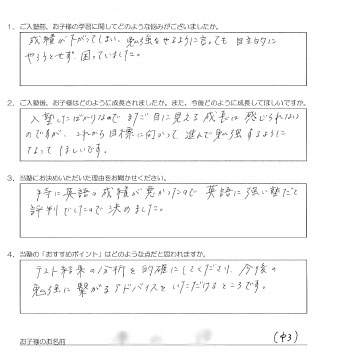 1. ご入塾前、お子様の学習に関してどのような悩みがございましたか。
成績が下がってしまい、勉強をやるように言っても自主的に
やろうとせず、困っていました。
2. ご入塾後、お子様はどのように成長されましたか。また、今後どのように成長してほしいですか。
入塾したばかりなのでまだ目に見える成長は感じられない
のですが、これから目標に向かって進んで勉強するように
なって ほしいです。
3. 当塾にお決めいただいた理由をお聞かせください。
特に英語の成績が悪かったので英語に強い塾だと
評判でしたので決めました。
4. 当塾の「おすすめポイント」はどのような点だと思われますか。
テスト結果の分析を的確にしてくださり、今後の
勉強に繋がるアドバイスをいただけるところです。
お子様のお名前
(中3)